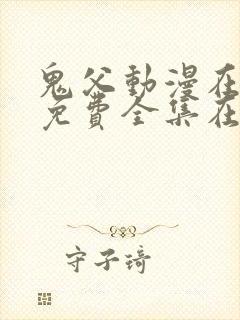 鬼父動漫在
免費全集在
守子琦